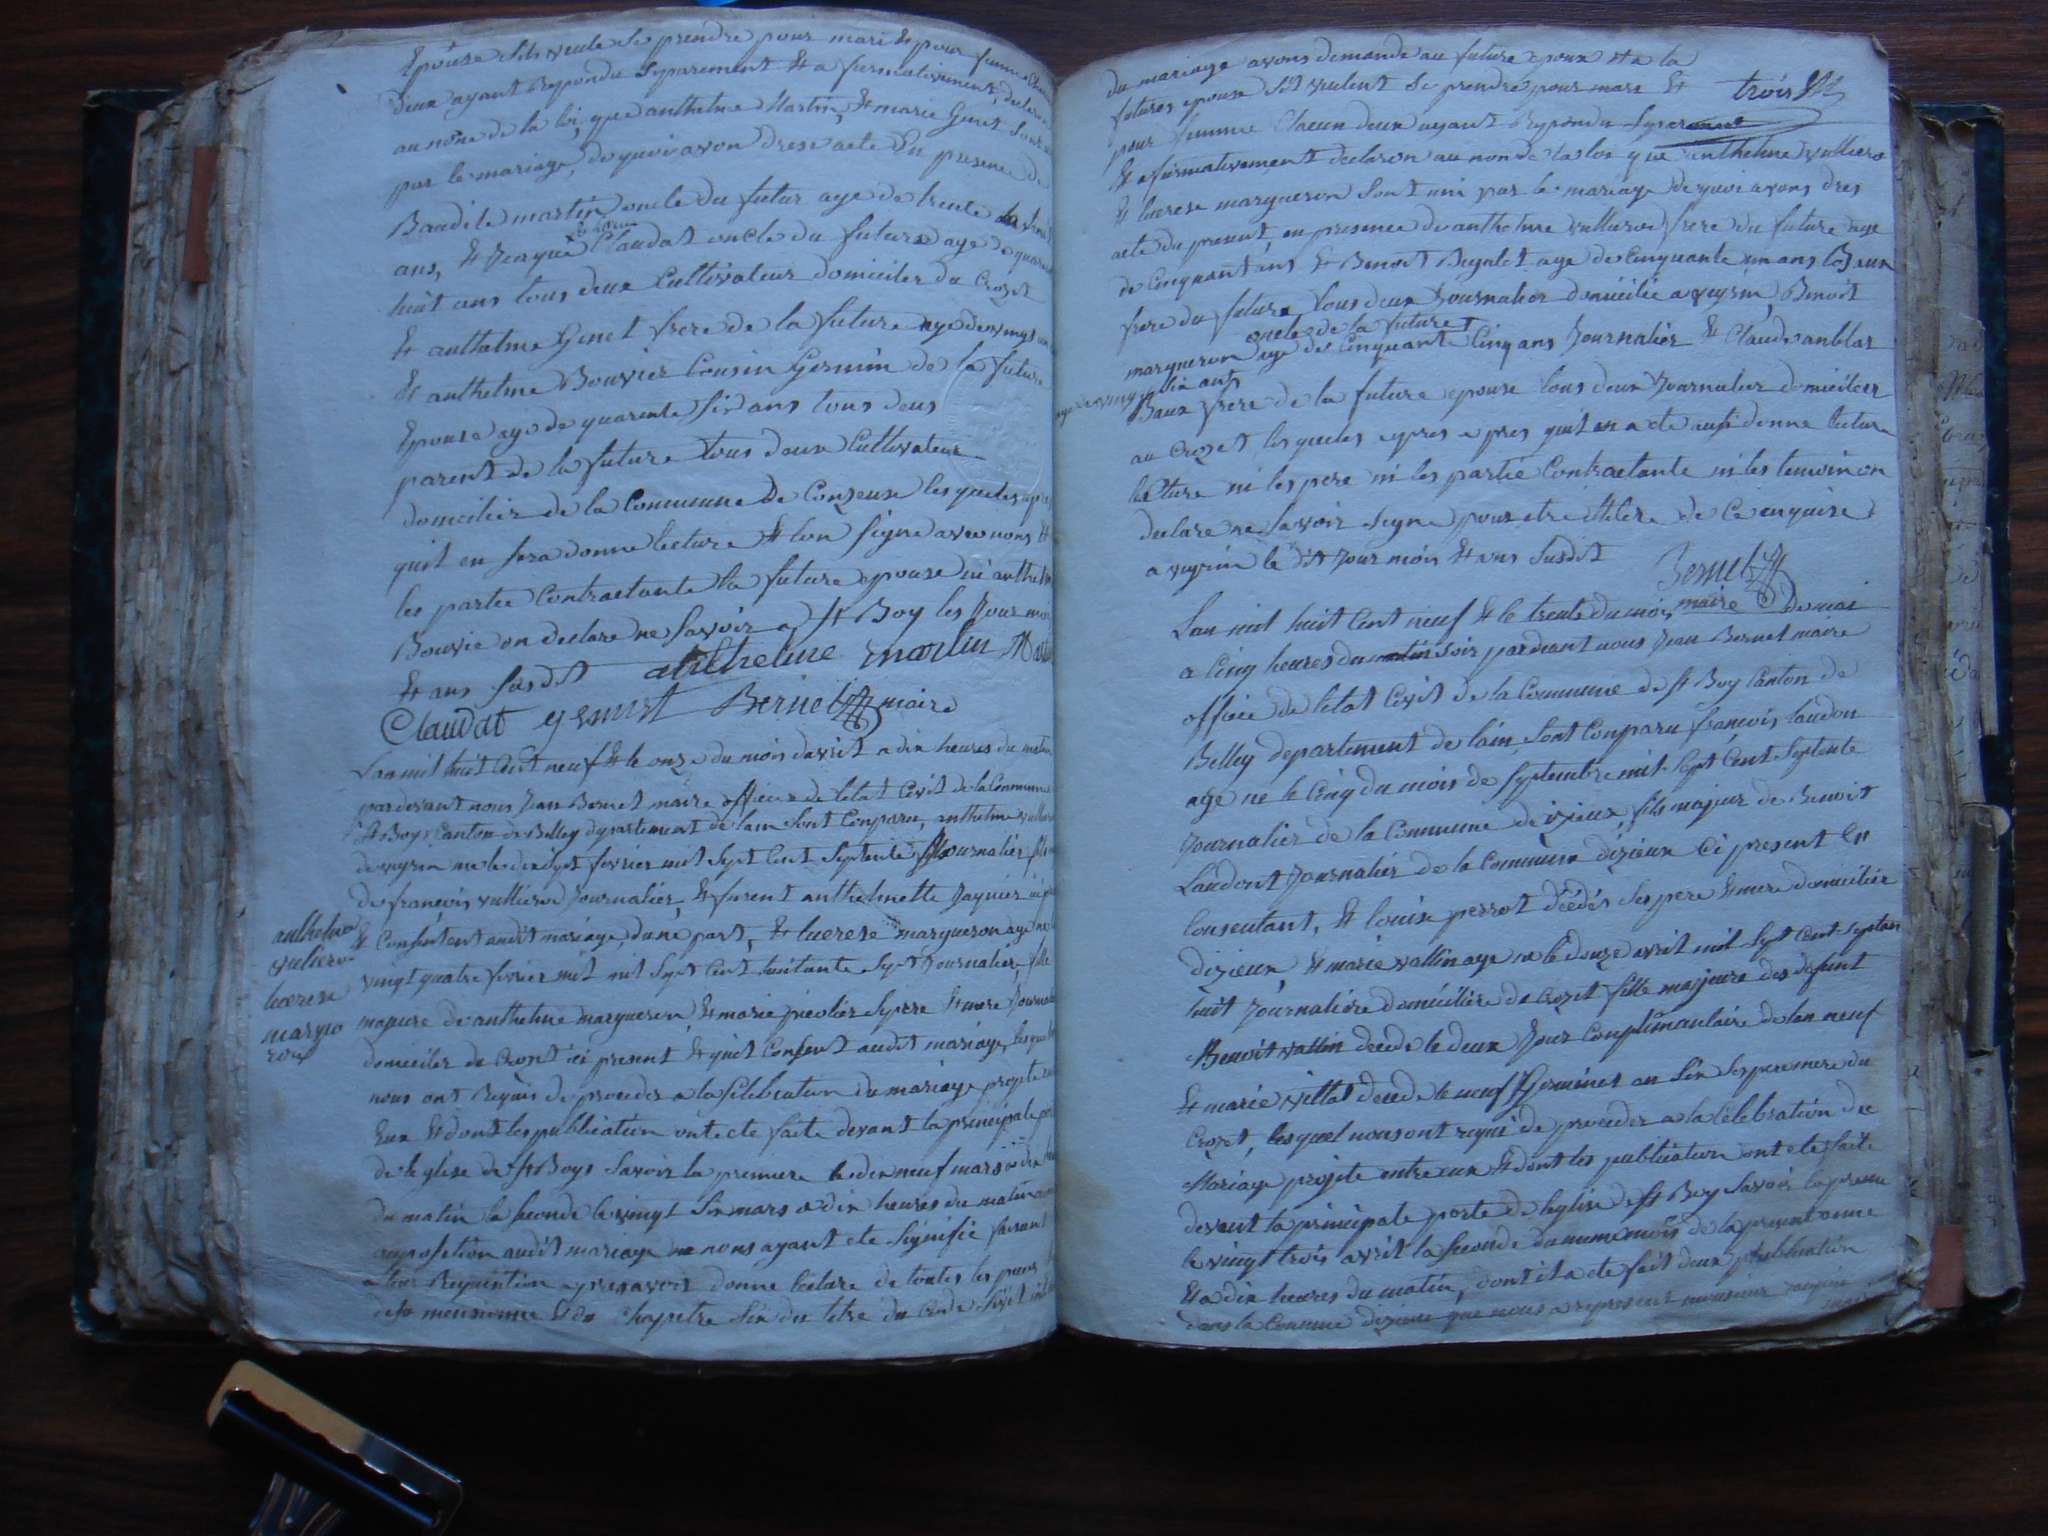 Epouse sils veule se prendre pour mari & pour femme
deux ayant Repondu Separement & a firmativement
au nome de la loi, que anthelme Martin, & marie Genet Sont
par le mariage, de quoi avon drese acte En presence de
Baudile martin oncle du futur age de trente
ans, & Jeaque Claudat oncle du future age de quarante
huit ans tous deux Cultivateur domicilies du Crozet
& anthelme Genet frere de la future age de vingt
& anthelme Bouvier Cousin Germin de la future
Epouse age de quarente six ans tous deus
parent de la future tous deux Cultivateur
domicilier de la Commune De Conzeux lesqueles
quil en fera donne lecture & lon signe avec nous &
les partie Contractante la future epouse ni anthelme
Bouvie on declare ne Savoir a St Boy les Jour mois
& ans susdit anthelme martin
Claudat genest Bernet maire
Lan mil huit Cent neuf & le onze du mois davrit a dix heures du matin
pardevant nous Jean Bernet maire officie de letat Civit de la Commune
St Boys Canton de Belley departement de lain Sont Comparu, anthelme
de veyrin ne le dix sept fevrier mil sept Cent septente Journalier
de francois vulliero Journalier, & furent anthelmette Jaquier
& Consentent audit mariage, dune part, & lucrese margueron age ne
vingt quatre fevrier mit mil sept Cent huitante sept Journalier fille
majeure de anthelme margueron, & marie Sepere & mere
domicilier de Crozet ici present & quit Consent audit mariage
nous ont Requis de proceder a la Selebration du mariage projete
Eux & dont les publication ont ete faite devant la principale
de leglise de St Boys Savoir la premiere le dix neuf mars a dix
du matin la seconde le vingt six mars a dix heures du matin
auposetion audit mariage ne nous ayant ete Signifie faisant
a leur Requisition apres avoir donne lecture de toutes les pieces
desu mensionne & du Chapitre Six du titre du Code Civit
anthelme
vuliero
lucrese
margue
ron
du mariage avons demande au future epoux & a la
futures epouse sit veulent se prendre pour mari &
trois
pour femme Chacun deux ayant Repondu Separement
& afirmativement declaron au non de la loi que anthelme vulliero
& lucrese margueron Sont uni par le mariage de quoi avons dres
acte du present, en presence de anthelme vulliero frere du future age
de Cinquant ans & Benoit Reynlet age de Cinquante un ans
frere du future tous deux Journalier domicilie a veyrin, Benoit
oncle de la future
margueron age de Cinquant Cinq ans Journalier & Claude anblar
age de vingt six ans
Baux frere de la future epouse tous deux Journalier domicilier
au Crozet lesqueles apres quil en a ete ausi donne lecture
lecture ni les pere ni les partie Contractante ni les temoin on
declare ne Savoir Signe pour etre illetere de Ce enquise
a veyrin le dit Jour mois & ans Susdit
Bernet
maire
Lan mil huit Cent neuf & le trente du mois de mai
a Cinq heures du matin soir pardevant nous Jean Bernet maire
officie de letat Civit de la Commune de St Boy Canton de
Belley departement de lain, Sont Comparu francois laudon
age ne le Cinq du mois de Septembre mit Sept Cent Septente
Journalier de la Commune dizieux, fils majeur de Benoit
Laudont Journalier de la Commune dizieux Ci present &
Consentant, & louise perrot dedes Ses pere & mere domicilier
dizieux & marie vallin age ne le douze avrit mit Sept Cent Septan
huit Journaliere domiciliere de Crozet fille majeure des defunt
Benoit vallin decede le deux Jour Complimantaire de lan neuf
& marie vittot decede le neuf Germinet an Six Ses pere mere du
Crozet, lesquel nous ont requi de proceder a la Celebration du
Mariage projete entre eux & dont les publication ont ete faite
devant la principale porte de leglise de St Boy Savoir la premie
le vingt trois avrit la seconde du meme mois de la present anne
& a dix heures du matin, dont il a ete fait deux publication
dans la Comune dizieux que nous a represent monsieur